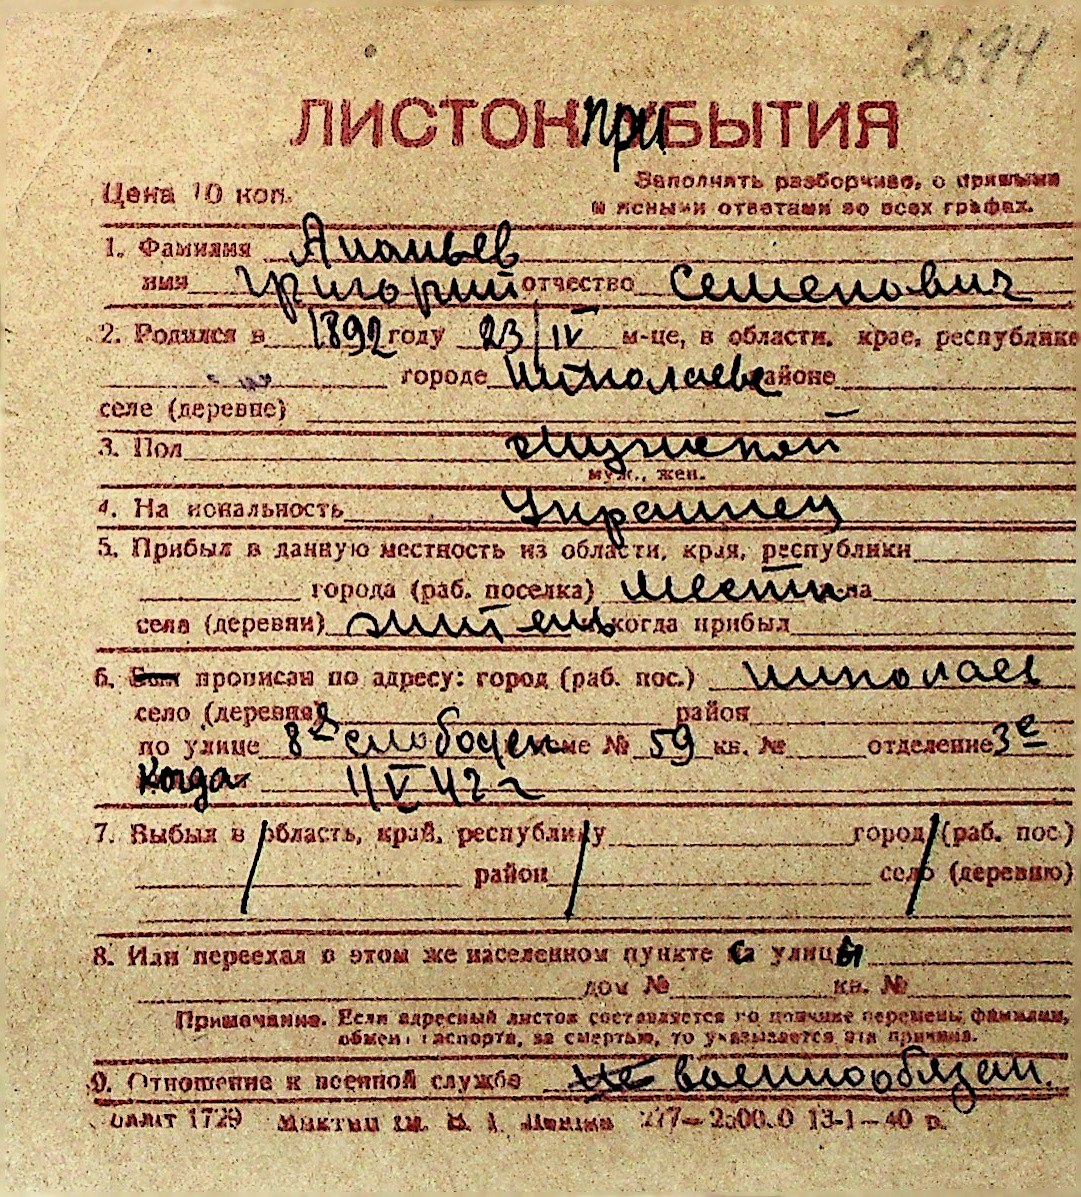 2694
ЛИСТОК ПРИБЫТИЯ
Цена 10 коп.
Заполнять разборчиво, с прямыми
и ясными ответами во всех графах.
1. Фамилия Ананьев
имя Григорий отчество Семенович
2. Родился в 1892 году 23/IV м-це, в области, крае, республике
городе Николаеве районе
селе (деревне)
3. Пол Мужской
муж., жен.
4. Национальность Украинец
5. Прибыл в данную местность из области, края, республики
города (раб. поселка) Местн
села (деревни) житель когда прибыл
6. Был прописан по адресу: город (раб. пос.) Николаев
село (деревня) район
по улице 8 Слободск доме № 59 кв. № отделение 3е
Когда 11/V 42 г
7. Выбыл в область, край, республику город (раб. пос.)
район село (деревню)
8. Или переехал в этом же населенном пункте с улицы
дом № кв. №
Примечание. Если адресный листок составляется по причине перемены фамилии,
обмена паспорта, за смертью, то указывается эта причина.
9. Отношение к военной службе не военнообязан.
1729 им. В. И. Ленина 277— 13-1—40 г.